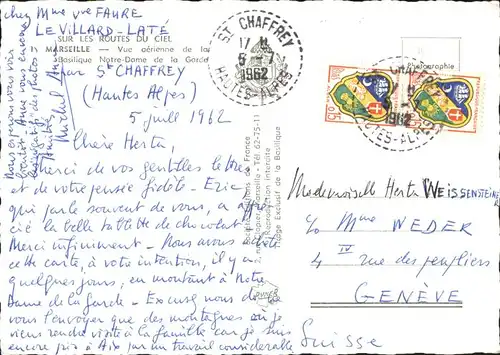 chez Mme Vve FAURE
LE VILLARD-LATÉ
SUR LES ROUTES DU CIEL
MARSEILLE — Vue aérienne de la
Basilique Notre-Dame de la Garde
par St CHAFFREY
(Hautes Alpes)
5 juill 1962
Chère Herta,
Merci de vos gentilles lettres
et de votre pensée fidèle - Eric
qui parle souvent de vous, a
cié la belle tablette de chocolat
Merci infiniment - Nous avons
cette carte, à votre intention, il y a
quelques jours, en montant à Notre
Dame de la Garde - Excusez nous de
vous l'envoyer que des montagnes où je
viens rendre visite à la famille car je suis
encore pris à Aix par un travail considérable
Nous espérons vous voir
bientôt - Anne vous enverra
des photos
Amitiés
Michel
ST CHAFFREY
17 H
5 - 7
1962
HAUTES-ALPES
Photographie
CHAFFREY
1962
0,15
de France
Marseille - Tél 62-75-11
Reproduction interdite
Tirage Exclusif de la Basilique
Mademoiselle Herta WEISSENSTEINE
c/o Mme WEDER
4 IV rue des peupliers
GENÈVE
Suisse